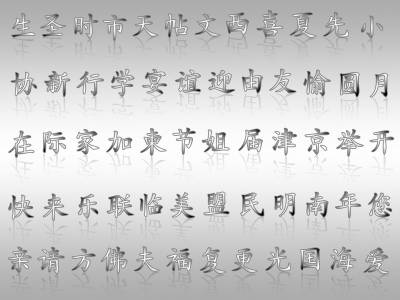 生圣时市天帖文西喜夏先小
协新行学宴谊迎由友愉圆月
在际家加柬节姐届津京举开
快来乐联临美盟民明南年您
亲请方佛夫福复更光国海爱